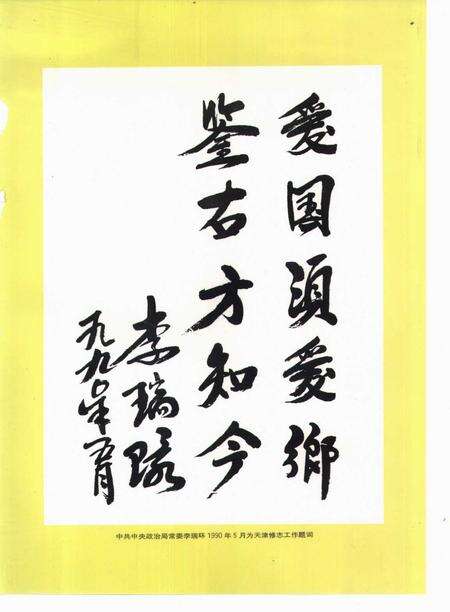 爱国须爱鄉
鉴古方知今
李瑞环
一九九〇年五月
中共中央政治局常委李瑞环 1990 年 5 月为天津修志工作题词